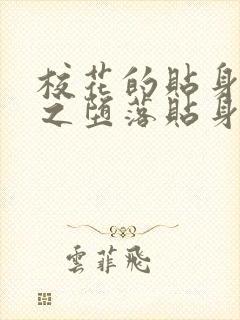 校花的貼身
之墮落貼身
雲菲飛